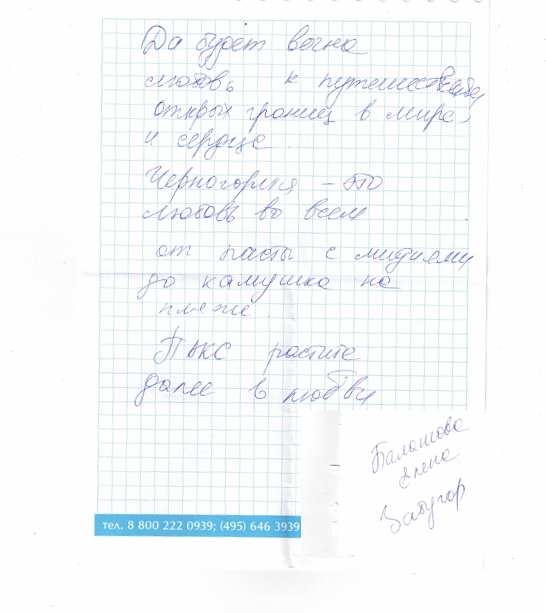 Да будет вечна
любовь к путешествиям
открых границ в мире
и сердце.
Черногория – это
любовь во всем
от пасты с мидиями
до камушка на
пляже.
ПАКС растите
далее в любви
Балашова
Елена
Забугор
тел. 8 800 222 0939; (495) 646 3939